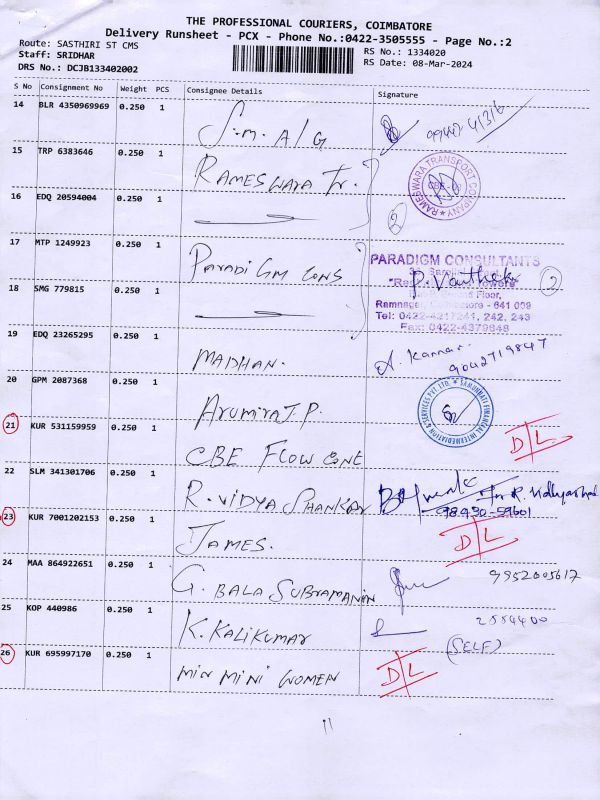 THE PROFESSIONAL COURIERS, COIMBATORE
Delivery Runsheet - PCX - Phone No.:0422-3505555 - Page No.:2
Route: SASTHIRI ST CMS
RS No.: 1334020
Staff: SRIDHAR
RS Date: 08-Mar-2024
DRS No.: DCJB133402002
S No Consignment No Weight PCS Consignee Details Signature
14 BLR 4350969969 0.250 1
S.M. A/G
15 TRP 6383646 0.250 1
RAMESWARA Tr.
RAMESWARA TRANSPORT COMPANY
16 EDQ 20594004 0.250 1
2
17 MTP 1249923 0.250 1
ParadiGM CONS
PARADIGM CONSULTANTS
2
18 SMG 779815 0.250 1
Floor,
Ramnagar, Coimbatore - 641 009
Tel: 0422-4217241, 242, 243
Fax: 0422-4379648
19 EDQ 23265295 0.250 1
MADHAN.
A. Kannan
9042719847
20 GPM 2087368 0.250 1
21 KUR 531159959 0.250 1
CBE FLOW
D/L
22 SLM 341301706 0.250 1
R. VIDYA SHANKAR
98430-59601
23 KUR 7001202153 0.250 1
JAMES.
D/L
24 MAA 864922651 0.250 1
G. BALA SUBRAMANIN
9952005617
25 KOP 440986 0.250 1
K. KALIKUMAR
2554400
(SELF)
26 KUR 695997170 0.250 1
MIN MINI WOMEN
D/L